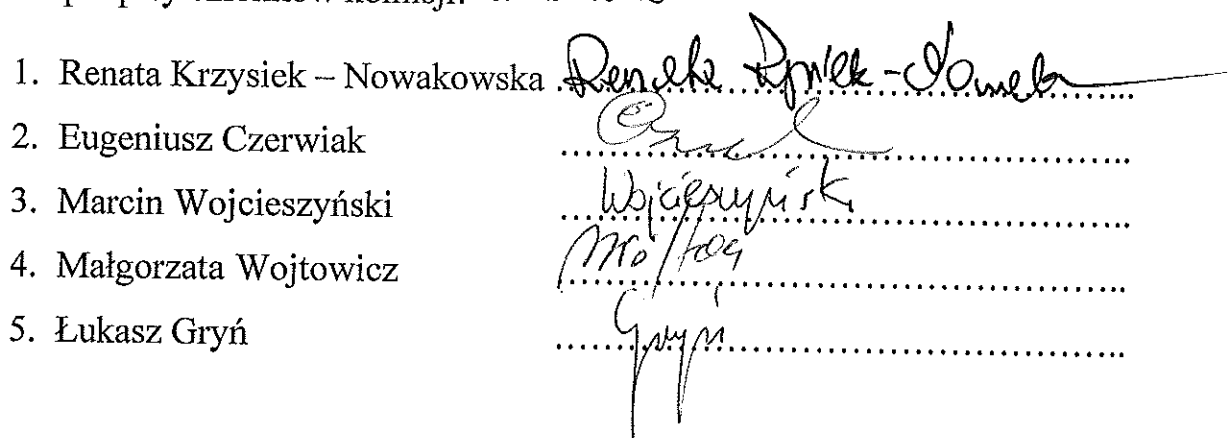 członków komisji:
1. Renata Krzysiek – Nowakowska
2. Eugeniusz Czerwiak
3. Marcin Wojcieszyński Wojcieszyński
4. Małgorzata Wojtowicz
5. Łukasz Gryń Gryń